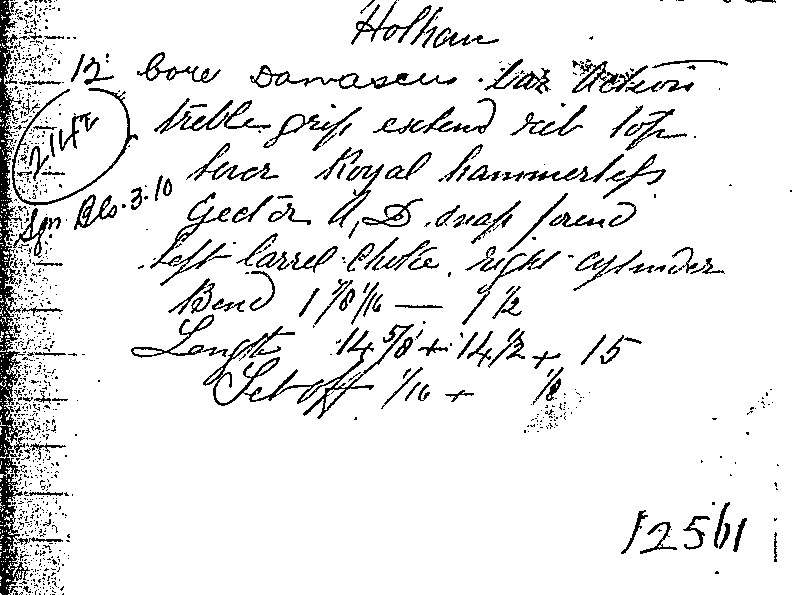 Holhan
12 bore Damascus bar Action
treble grip extend rib top
lever Royal hammerless
Gector A, D snap forend
left barrel choke right cylinder
Bend 1 7/8 1/16 — 1 1/2
Length 14 5/8 + 14 1/2 + 15
Set off 1/16 + 1/8
2142
Bls. 3.10
12561